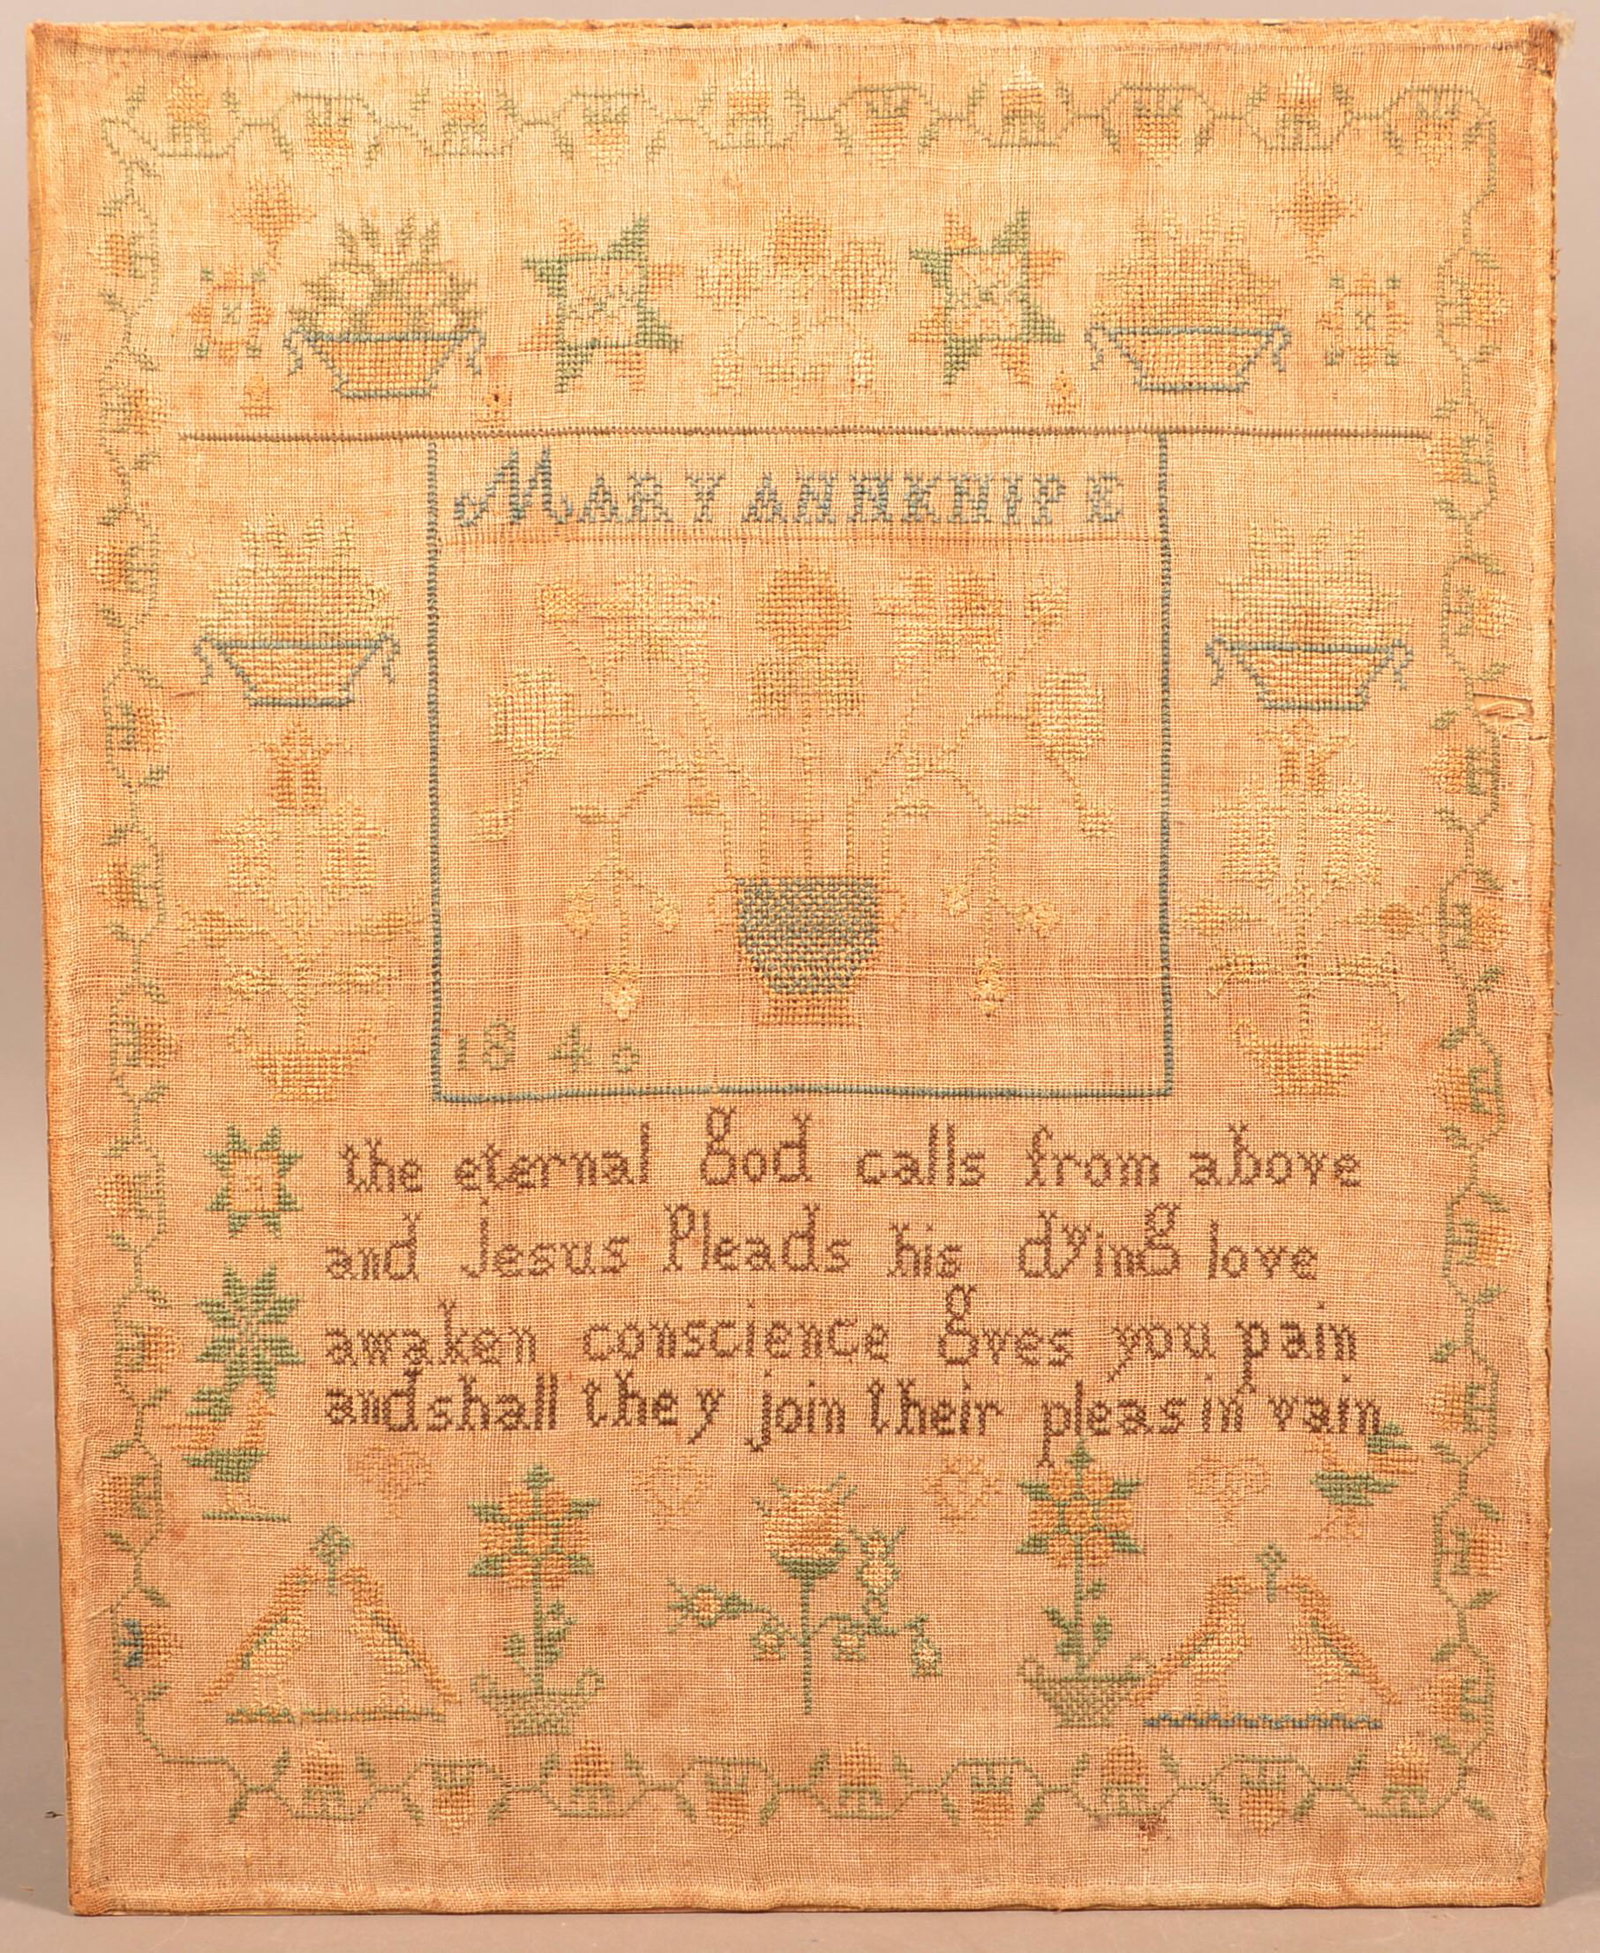 MARY ANNKNIPE
1840
the eternal god calls from above
and Jesus Pleads his dying love
awaken conscience gves you pain
andshall they join their pleas in vain